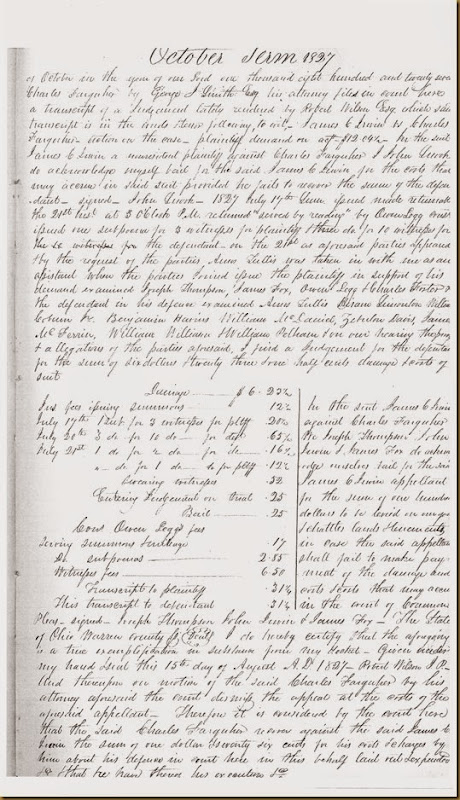 October Term 1827
of October in the year of our Lord one thousand eight hundred and twenty seven
Charles Farquher by George J Smith Esq his attorney files in court here
a transcript of a Judgement lately rendered by Robert Wilson Esq which said
transcript is in the words following to wit James C Irwin vs Charles
Farquher action on the case plaintiffs demand on act $12.04¼ In the suit
James C Irwin a nonresident plaintiff against Charles Farquher I John
do acknowledge myself bail for the said James C Irwin for the costs that
may accrue in said suit provided he fails to recover the sum of the defen
dant signed John 1827 July 17th Sum issued made returnable
the 21st inst at 3 OClock P.M. returned "served by reading" by Owen Legg const
issued one subpoena for 3 witnesses for plaintiff & three do for 10 witnesses for
the witnesses for the defendant on the 21st as aforesaid parties appeared
& by the request of the parties Amos was taken in with me as an
assistant when the parties joined issue the plaintiff in support of his
demand examined Joseph Thompson, James Fox, Owen Legg & Charles Foster &
the defendant in his defence examined Amos
Benjamin William McDaniel, Zebulon Davis, James
William William & William Pelham & on our hearing the proof
& allegations of the parties aforesaid, I find a Judgement for the defendant
for the sum of six dollars & twenty three & one half cents damage & costs of
suit
Damage $6.23½
Jus fees issuing summons 12½
July 17th 1 Sub for 3 witnesses for pltff 20½
July 20th 3 do for 10 do for deft 63½
July 21st 1 do for 2 do for do 16½
" do for 1 do do for pltff 12½
Swearing witnesses .32
Entering Judgement on trial .25
Bail .25
Cons Owen Leggs fees
Serving summons & mileage .17
Do subpoenas 2.85
Witnesses fees 6.50
Transcript to plaintiff 31¼
This transcript to defendant 31¼
In the suit James C Irwin
against Charles Farquher
We Joseph Thompson John
Irwin & James Fox do acknow
ledge ourselves bail for the said
James C Irwin appellant
for the sum of one hundred
dollars to be levied on our goods
& chattles lands & tenements
in case the said appellant
shall fail to make pay
ment of the damage and
costs & costs that may accrue
in the court of Common
Pleas signed Joseph Thompson John Irwin & James Fox The State
of Ohio Warren county I do hereby certify that the aforegoing
is a true exemplification in substance from my Docket Given under
my hand & seal this 15th day of August A.D 1827 Robert Wilson J.P.
And thereupon on motion of the said Charles Farquher by his
attorney aforesaid the court dismiss the appeal at the costs of the
aforesaid appellant Therefore it is considered by the court here
that the said Charles Farquher recover against the said James C
Irwin the sum of one dollar & seventy six cents for his costs & charges by
him about his defence in court here in this behalf laid out & expended
& that he have thereof his execution &c